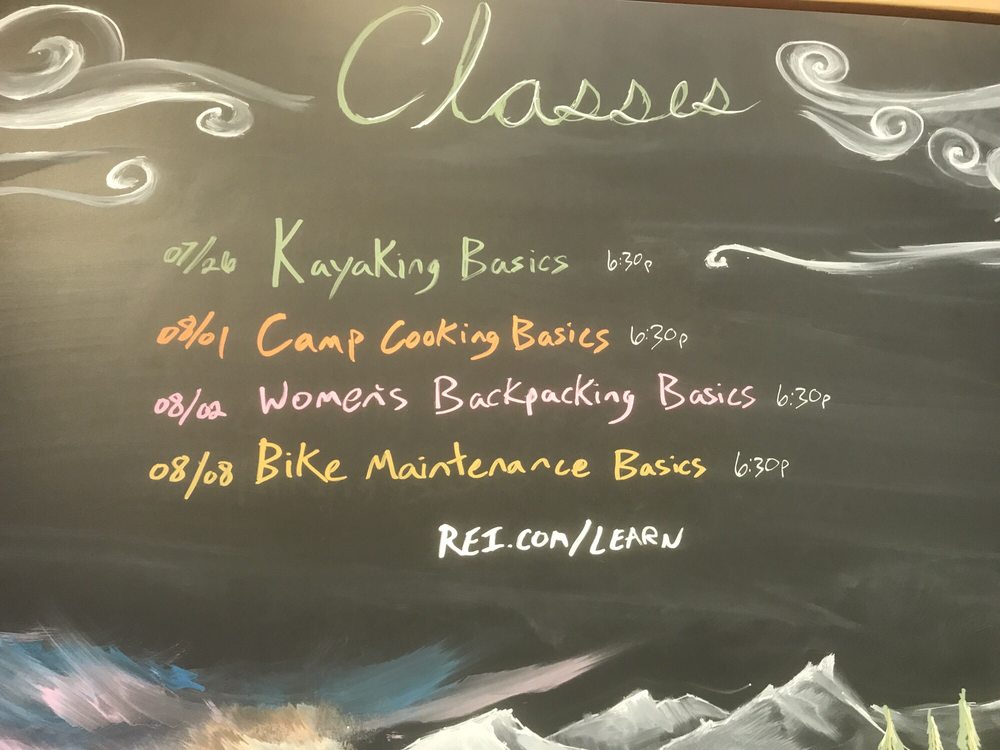 Classes
07/26 Kayaking Basics 6:30p
08/01 Camp Cooking Basics 6:30p
08/02 Women's Backpacking Basics 6:30p
08/08 Bike Maintenance Basics 6:30p
REI.com/LEARN